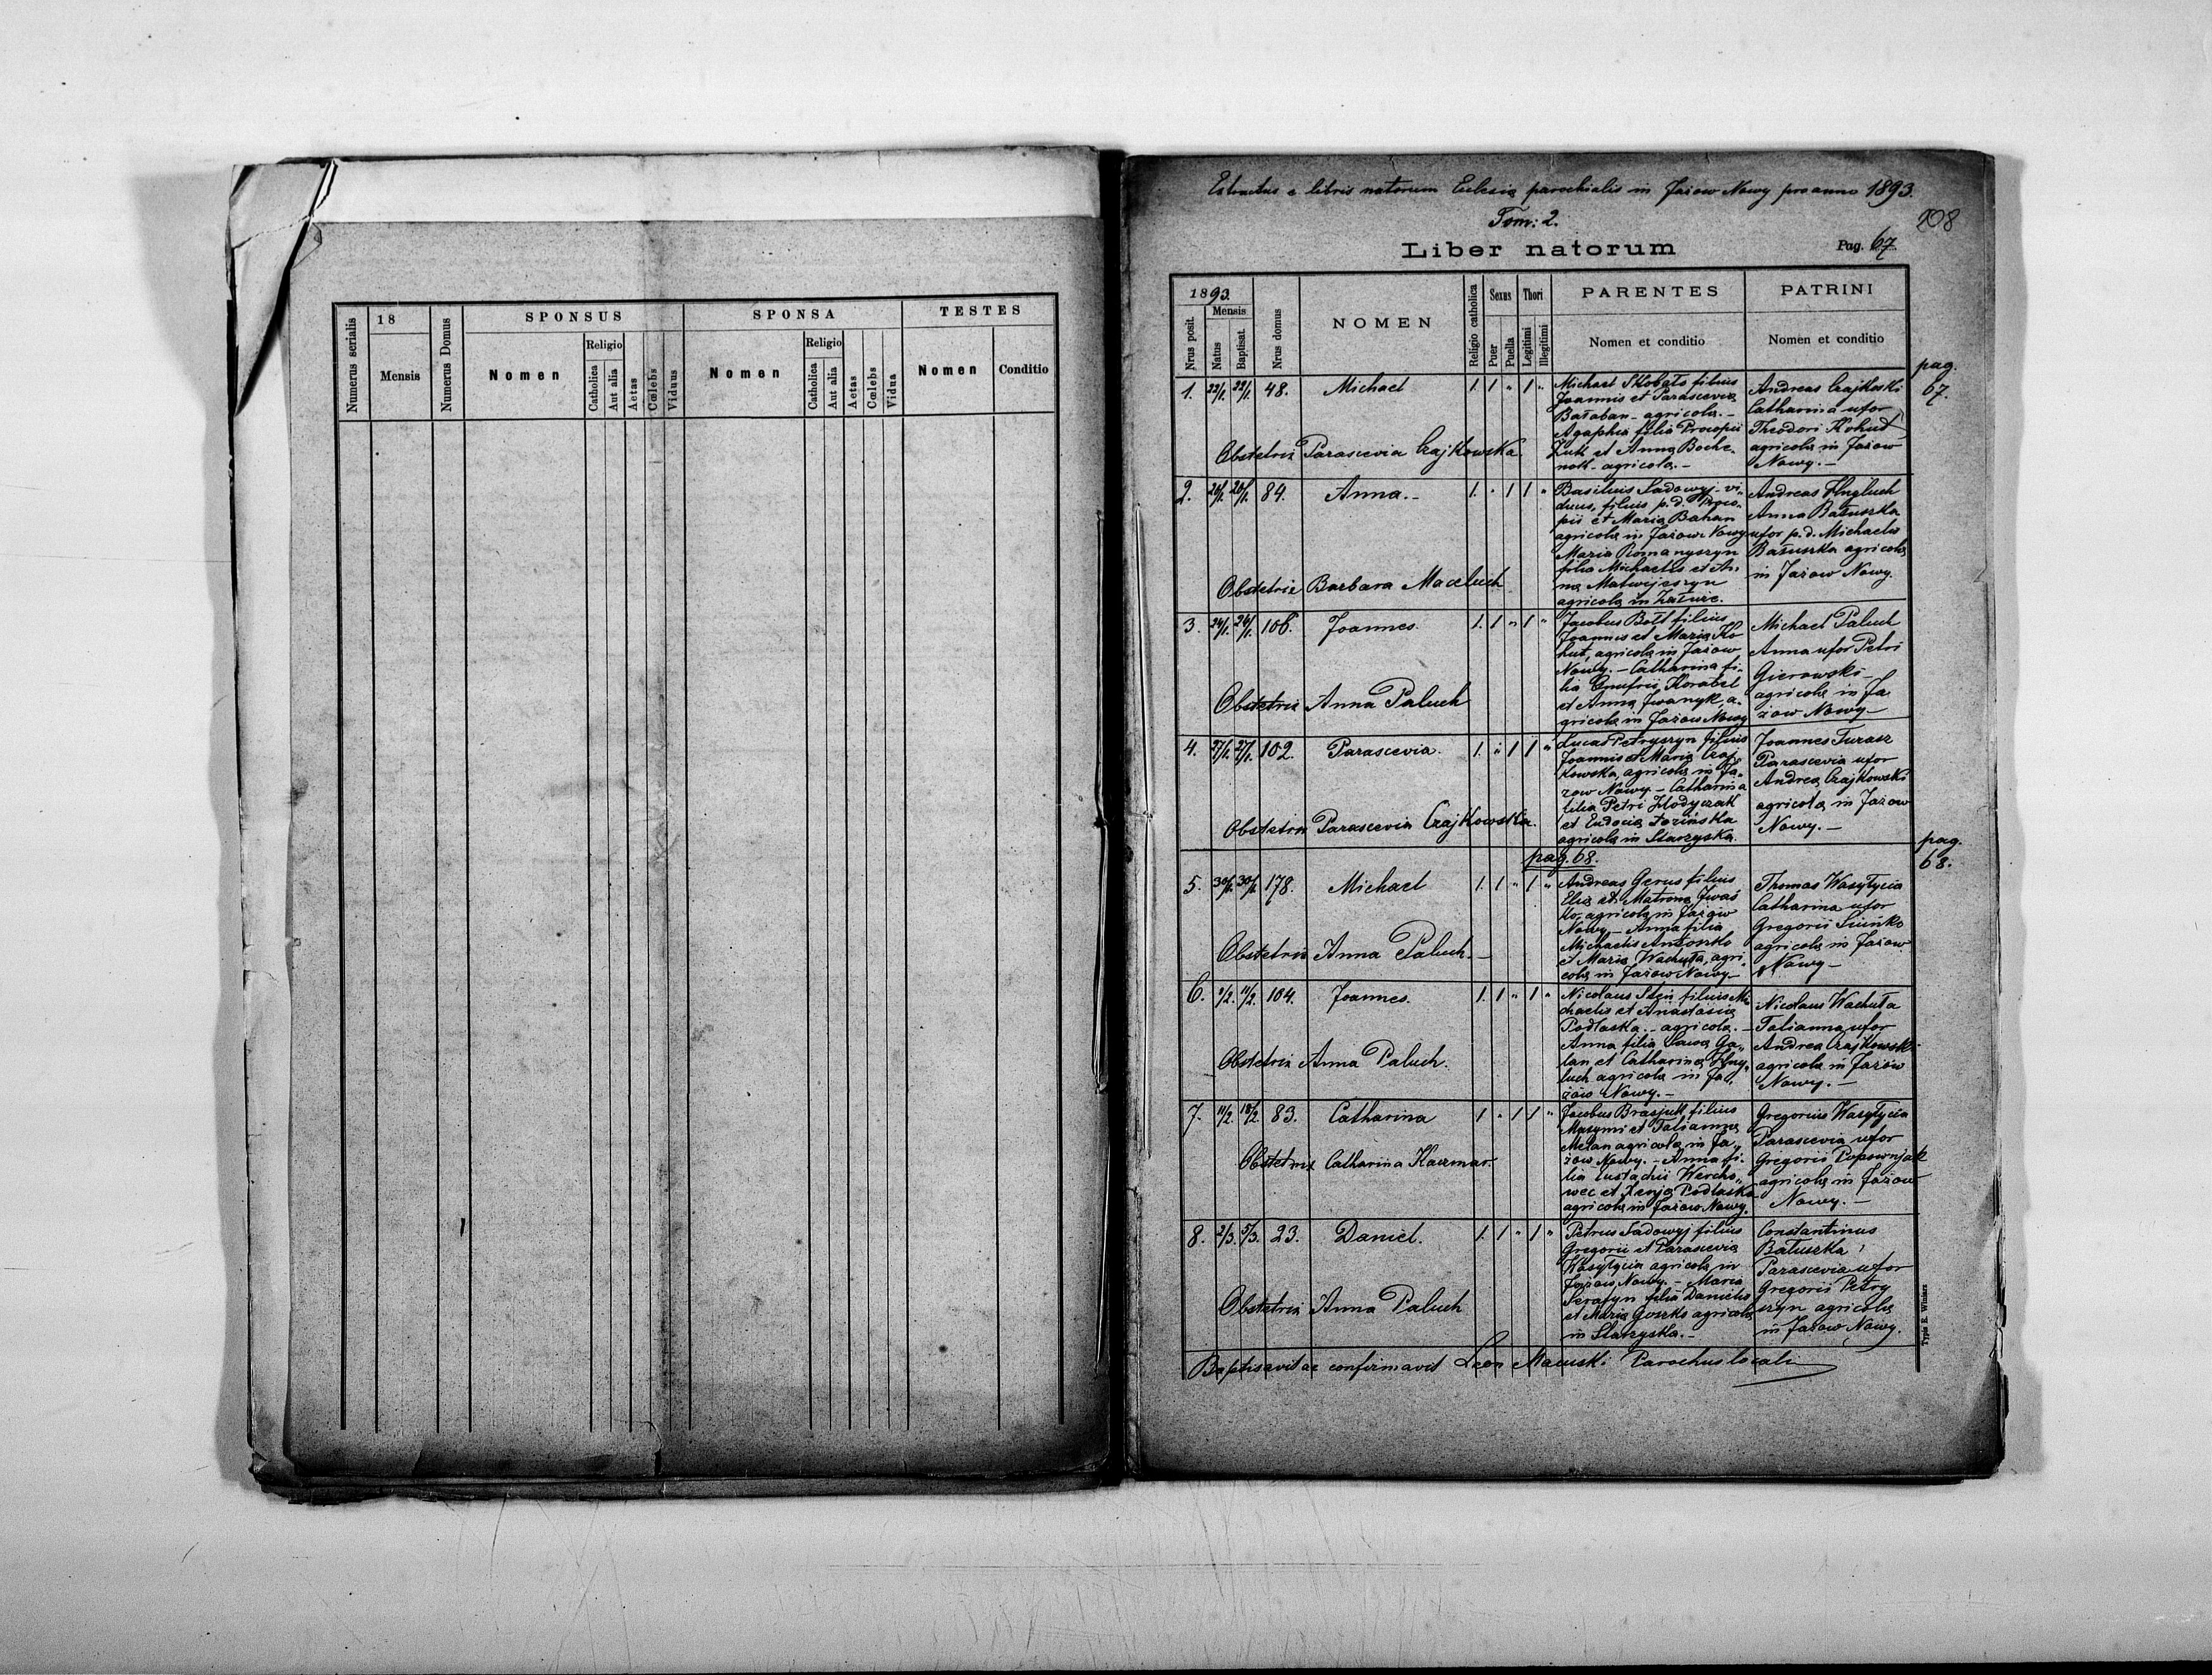 Numerus serialis
18
Mensis
Numerus Domus
SPONSUS
Nomen
Religio
Catholica
Aut alia
Aetas
Cœlebs
Viduus
SPONSA
Nomen
Religio
Catholica
Aut alia
Aetas
Cœlebs
Vidua
TESTES
Nomen
Conditio
Extractus e libris natorum Eclesiæ parochialis in Jażow Nowy pro anno 1893.
Tom: 2.
208
Liber natorum
Pag. 67.
Nrus posit.
1893.
Mensis
Natus
Baptisat.
Nrus domus
NOMEN
Religio catholica
Sexus
Puer
Puella
Thori
Legitimi
Illegitimi
PARENTES
Nomen et conditio
PATRINI
Nomen et conditio
pag.
67.
1. 22/1. 22/1. 48. Michael 1. 1 " 1 "
Michael Skobało filius
Joannis et Parascevia
Bałaban - agricola. -
Agaphia filia Procopii
Żuk et Anna
agricola. -
Andreas Czajkoski
Catharina uxor
Theodori Kohut
agricola in Jażow
Nowy. -
Obstetrix Parascevia Czajkowska
2. 20/1. 20/1. 84. Anna. - 1. " 1 1 "
Basilius Sadowyj vi„
duus, filius p. d. Proco„
pii et Maria Bahan
agricola in Jażow Nowy
Maria Romanyszyn
filia Michaelis et An„
na Matwijeszyn
agricola in Załuże.
Andreas Hnyluch
Anna Batuszka
uxor p. d. Michaelis
Batuszka agricola
in Jażow Nowy.
Obstetrix Barbara Maceluch
3. 24/1. 26/1. 106. Joannes. 1. 1 " 1 "
Jacobus Bołt filius
Joannis et Maria Ko
hut, agricola in Jażow
Nowy. - Catharina fi„
lia Onufrii Korabel
et Anna Iwanyk, a„
gricola in Jażow Nowy
Michael Paluch
Anna uxor Petri
Gierowski -
agricola in Ja
żow Nowy -
Obstetrix Anna Paluch
4. 27/1. 27/1. 102. Parascevia. 1. " 1 1 "
Lucas Petryszyn filius
Joannis et Maria Czaj„
kowska, agricola in Ja„
żow Nowy - Catharina
filia Petri Hodyczak
et Eudocia Łozińska
agricola in Starzyska.
Joannes Turasz
Parascevia uxor
Andrea Czajkowski
agricola in Jażow
Nowy. -
Obstetrix Parascevia Czajkowska.
pag. 68.
pag.
68.
5. 30/1. 30/1. 178. Michael 1. 1 " 1 "
Andreas Gerus filius
Elia et Matrona Iwaś
ko, agricola in Jażow
Nowy - Anna filia
Michaelis Antoszko
et Maria Wachuta, agri„
cola in Jażow Nowy -
Thomas Wasylycia
Catharina uxor
Gregorii
agricola in Jażow
Nowy -
Obstetrix Anna Paluch. -
6. 11/2. 104. Joannes. 1. 1 " 1 "
Nicolaus Steń filius Mi
chaelis et Anastasia
Podlaska. - agricola. -
Anna filia Sawa Ga„
lan et Catharina Hny„
luch agricola in Ja„
żow Nowy. -
Nicolaus Wachuta
Tatianna uxor
Andrea Czajkowski
agricola in Jażow
Nowy. -
Obstetrix Anna Paluch.
7. 11/2. 18/2. 83. Catharina 1 " 1 1 "
Jacobus Brasjuk filius
Maxymi et Tatianna
Melan agricola in Ja„
żow Nowy. - Anna fi„
lia Eustachii Wercho„
wec et Xenja Podlaska
agricola in Jażow Nowy.
Gregorius Wasylycia
Parascevia uxor
Gregorii Popownjak
agricola in Jażow
Nowy. -
Obstetrix Catharina Kaczmar.
8. 2/3. 5/3. 23. Daniel. 1. 1 " 1 "
Petrus Sadowyj filius
Gregorii et Parascevia
Wasylycia agricola in
Jażow Nowy. - Maria
Serafyn filia Danielis
et Maria Goszko agricola
in Starzyska. -
Constantinus
Batuszka
Parascevia uxor
Gregorii Petry
szyn agricola
in Jażow Nowy.
Obstetrix Anna Paluch
Baptisavit ac confirmavit Leon Parochus locali
Typis E. Winiarz